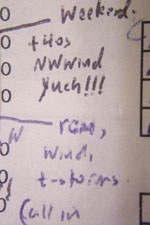 Weekend.
t40s
NWwind
Yuch!!!
rain,
wind,
t-storms.
Call in